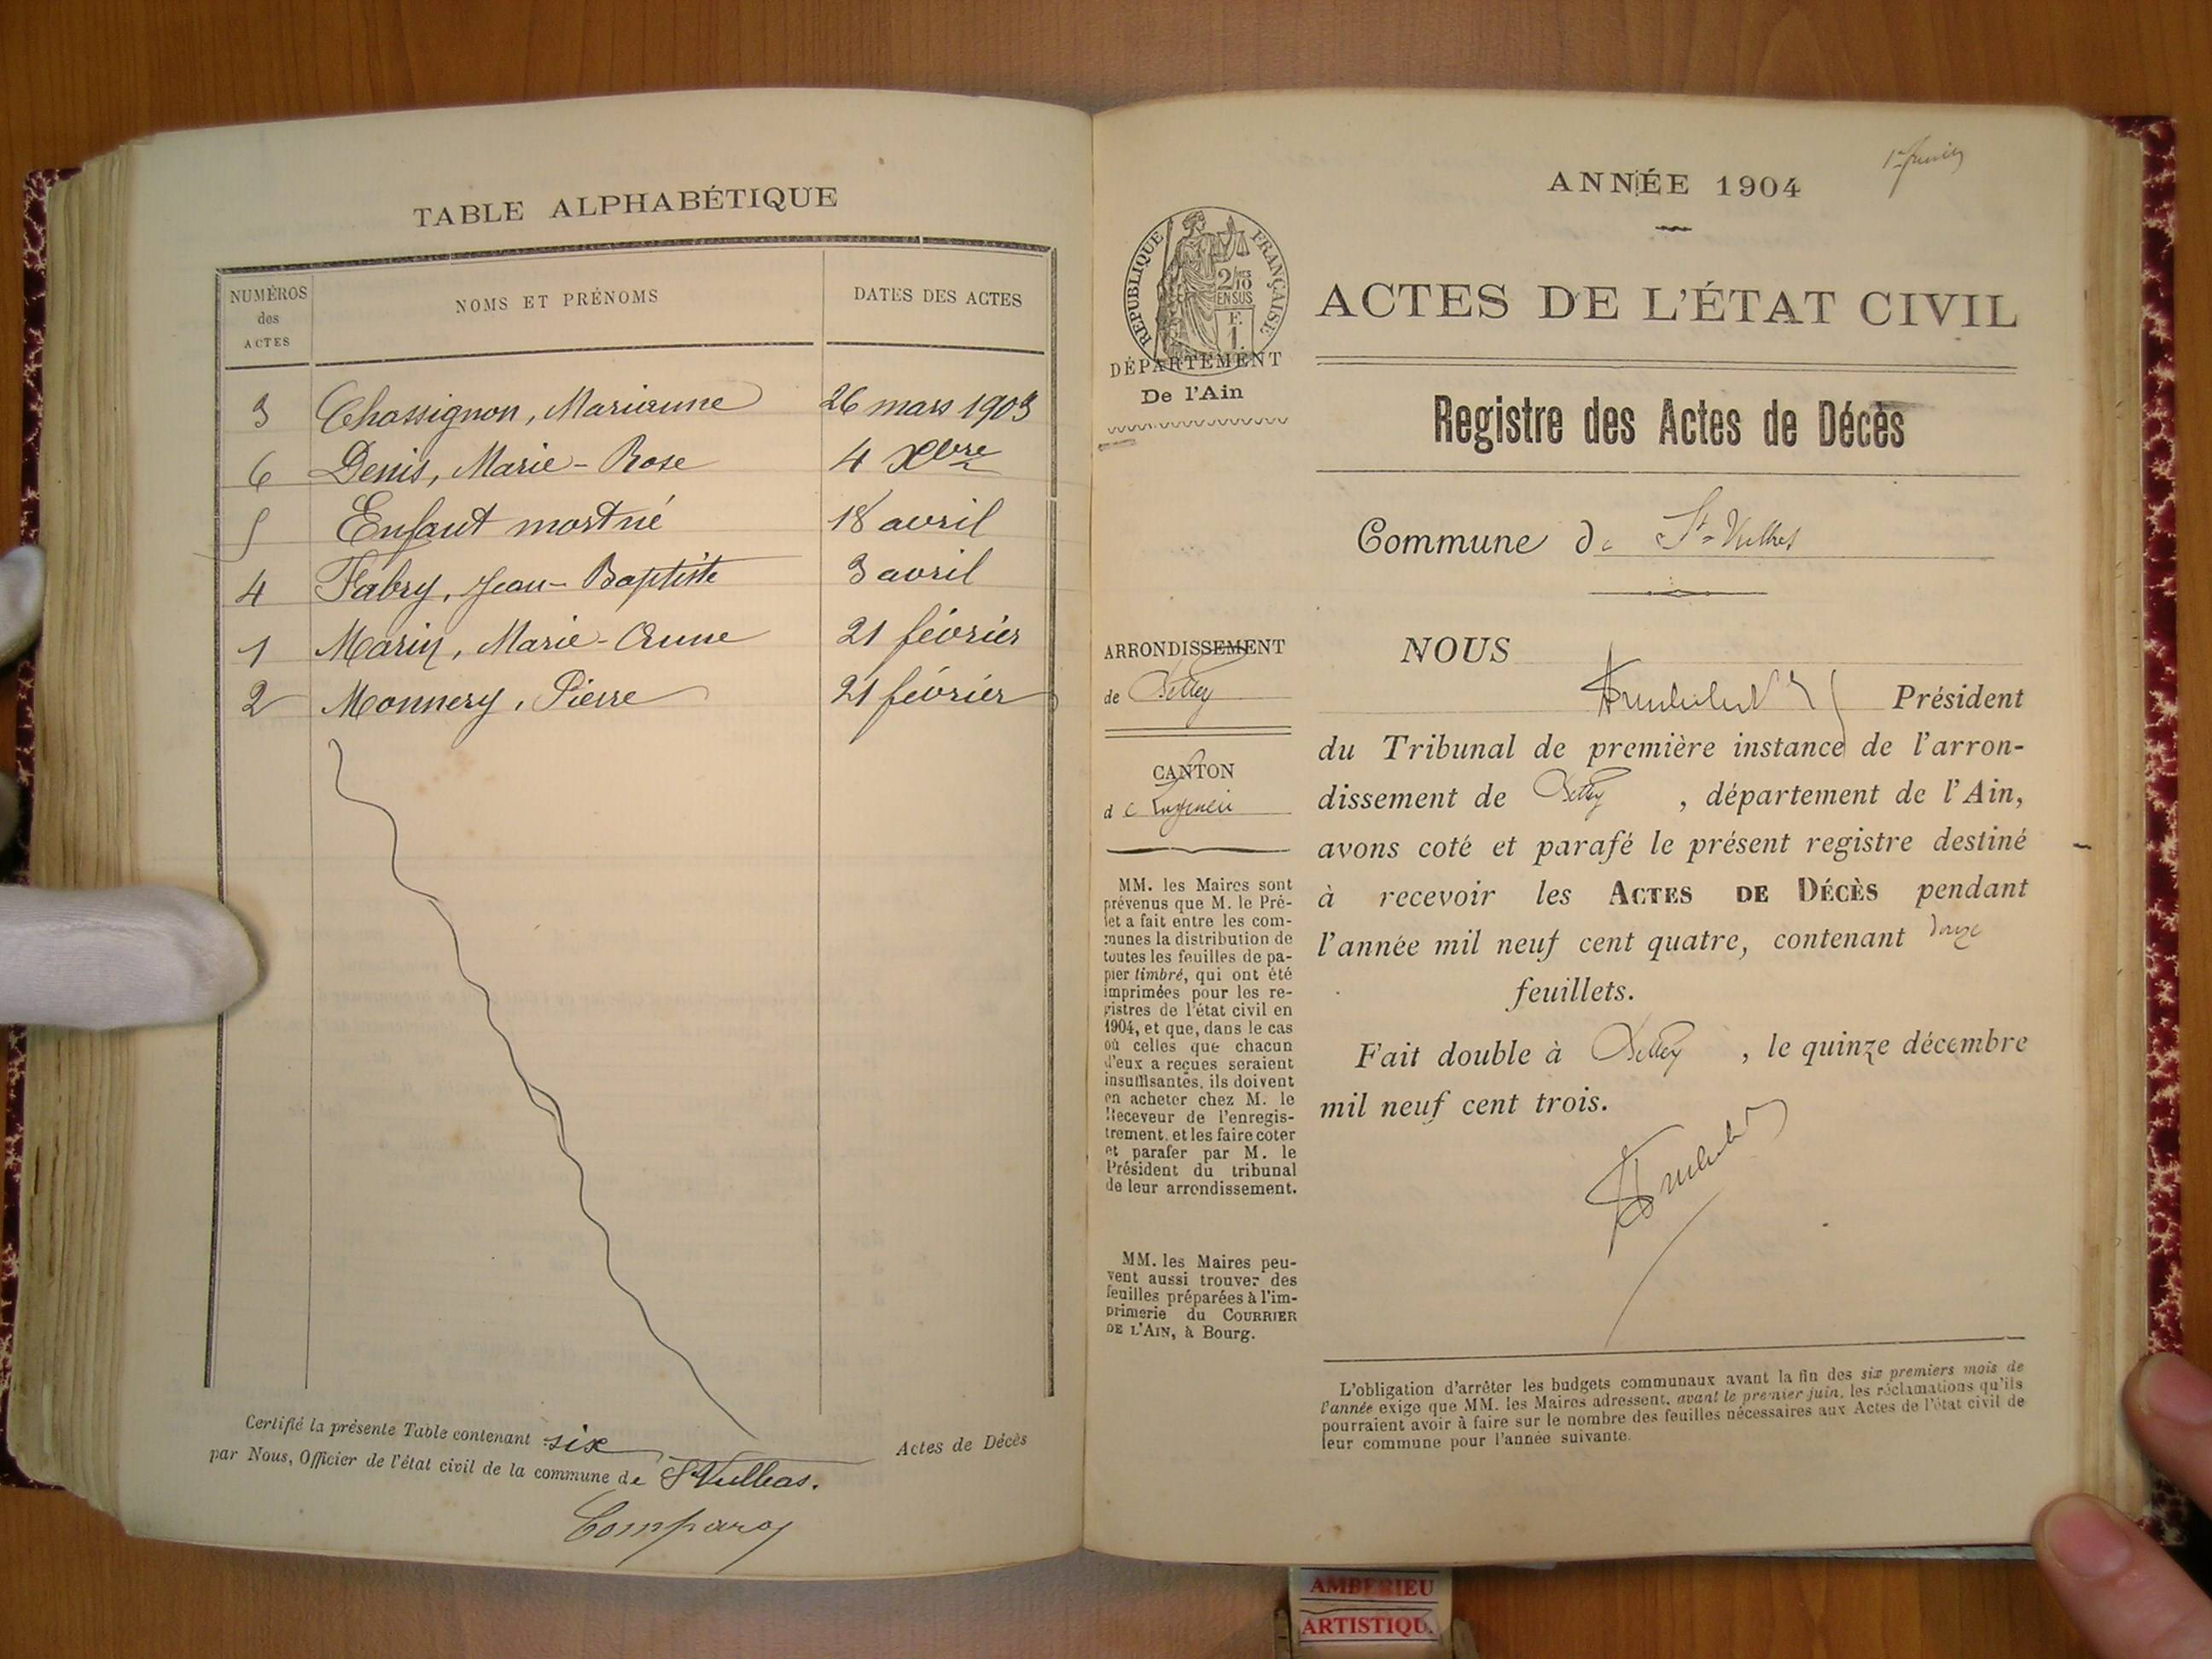 TABLE ALPHABÉTIQUE
NUMÉROS des ACTES
NOMS ET PRÉNOMS
DATES DES ACTES
3 Chassignon, Marianne 26 mars 1903
6 Denis, Marie-Rose 4 Xbre
5 Enfant mort né 18 avril
4 Fabry, Jean-Baptiste 3 avril
1 Marin, Marie-Anne 21 février
2 Monnery, Pierre 21 février
Certifié la présente Table contenant six Actes de Décès
par Nous, Officier de l'état civil de la commune de St Vulbas.
Comparoy
RÉPUBLIQUE FRANÇAISE
2/10
EN SUS
DÉPARTEMENT
De l'Ain
ARRONDISSEMENT
de Belley
CANTON
de Lagnieu
MM. les Maires sont
prévenus que M. le Pré-
fet a fait entre les com-
munes la distribution de
toutes les feuilles de pa-
pier timbré, qui ont été
imprimées pour les re-
gistres de l'état civil en
1904, et que, dans le cas
où celles que chacun
d'eux a reçues seraient
insuffisantes, ils doivent
en acheter chez M. le
Receveur de l'enregis-
trement, et les faire coter
et parafer par M. le
Président du tribunal
de leur arrondissement.
MM. les Maires peu-
vent aussi trouver des
feuilles préparées à l'im-
primerie du COURRIER
DE L'AIN, à Bourg.
ANNÉE 1904
ACTES DE L'ÉTAT CIVIL
Registre des Actes de Décès
Commune de St-Vulbas
NOUS
Président
du Tribunal de première instance de l'arron-
dissement de Belley, département de l'Ain,
avons coté et parafé le présent registre destiné
à recevoir les ACTES DE DÉCÈS pendant
l'année mil neuf cent quatre, contenant
feuillets.
Fait double à Belley, le quinze décembre
mil neuf cent trois.
L'obligation d'arrêter les budgets communaux avant la fin des six premiers mois de
l'année exige que MM. les Maires adressent, avant le premier juin, les réclamations qu'ils
pourraient avoir à faire sur le nombre des feuilles nécessaires aux Actes de l'état civil de
leur commune pour l'année suivante.
AMBERIEU
ARTISTIQU